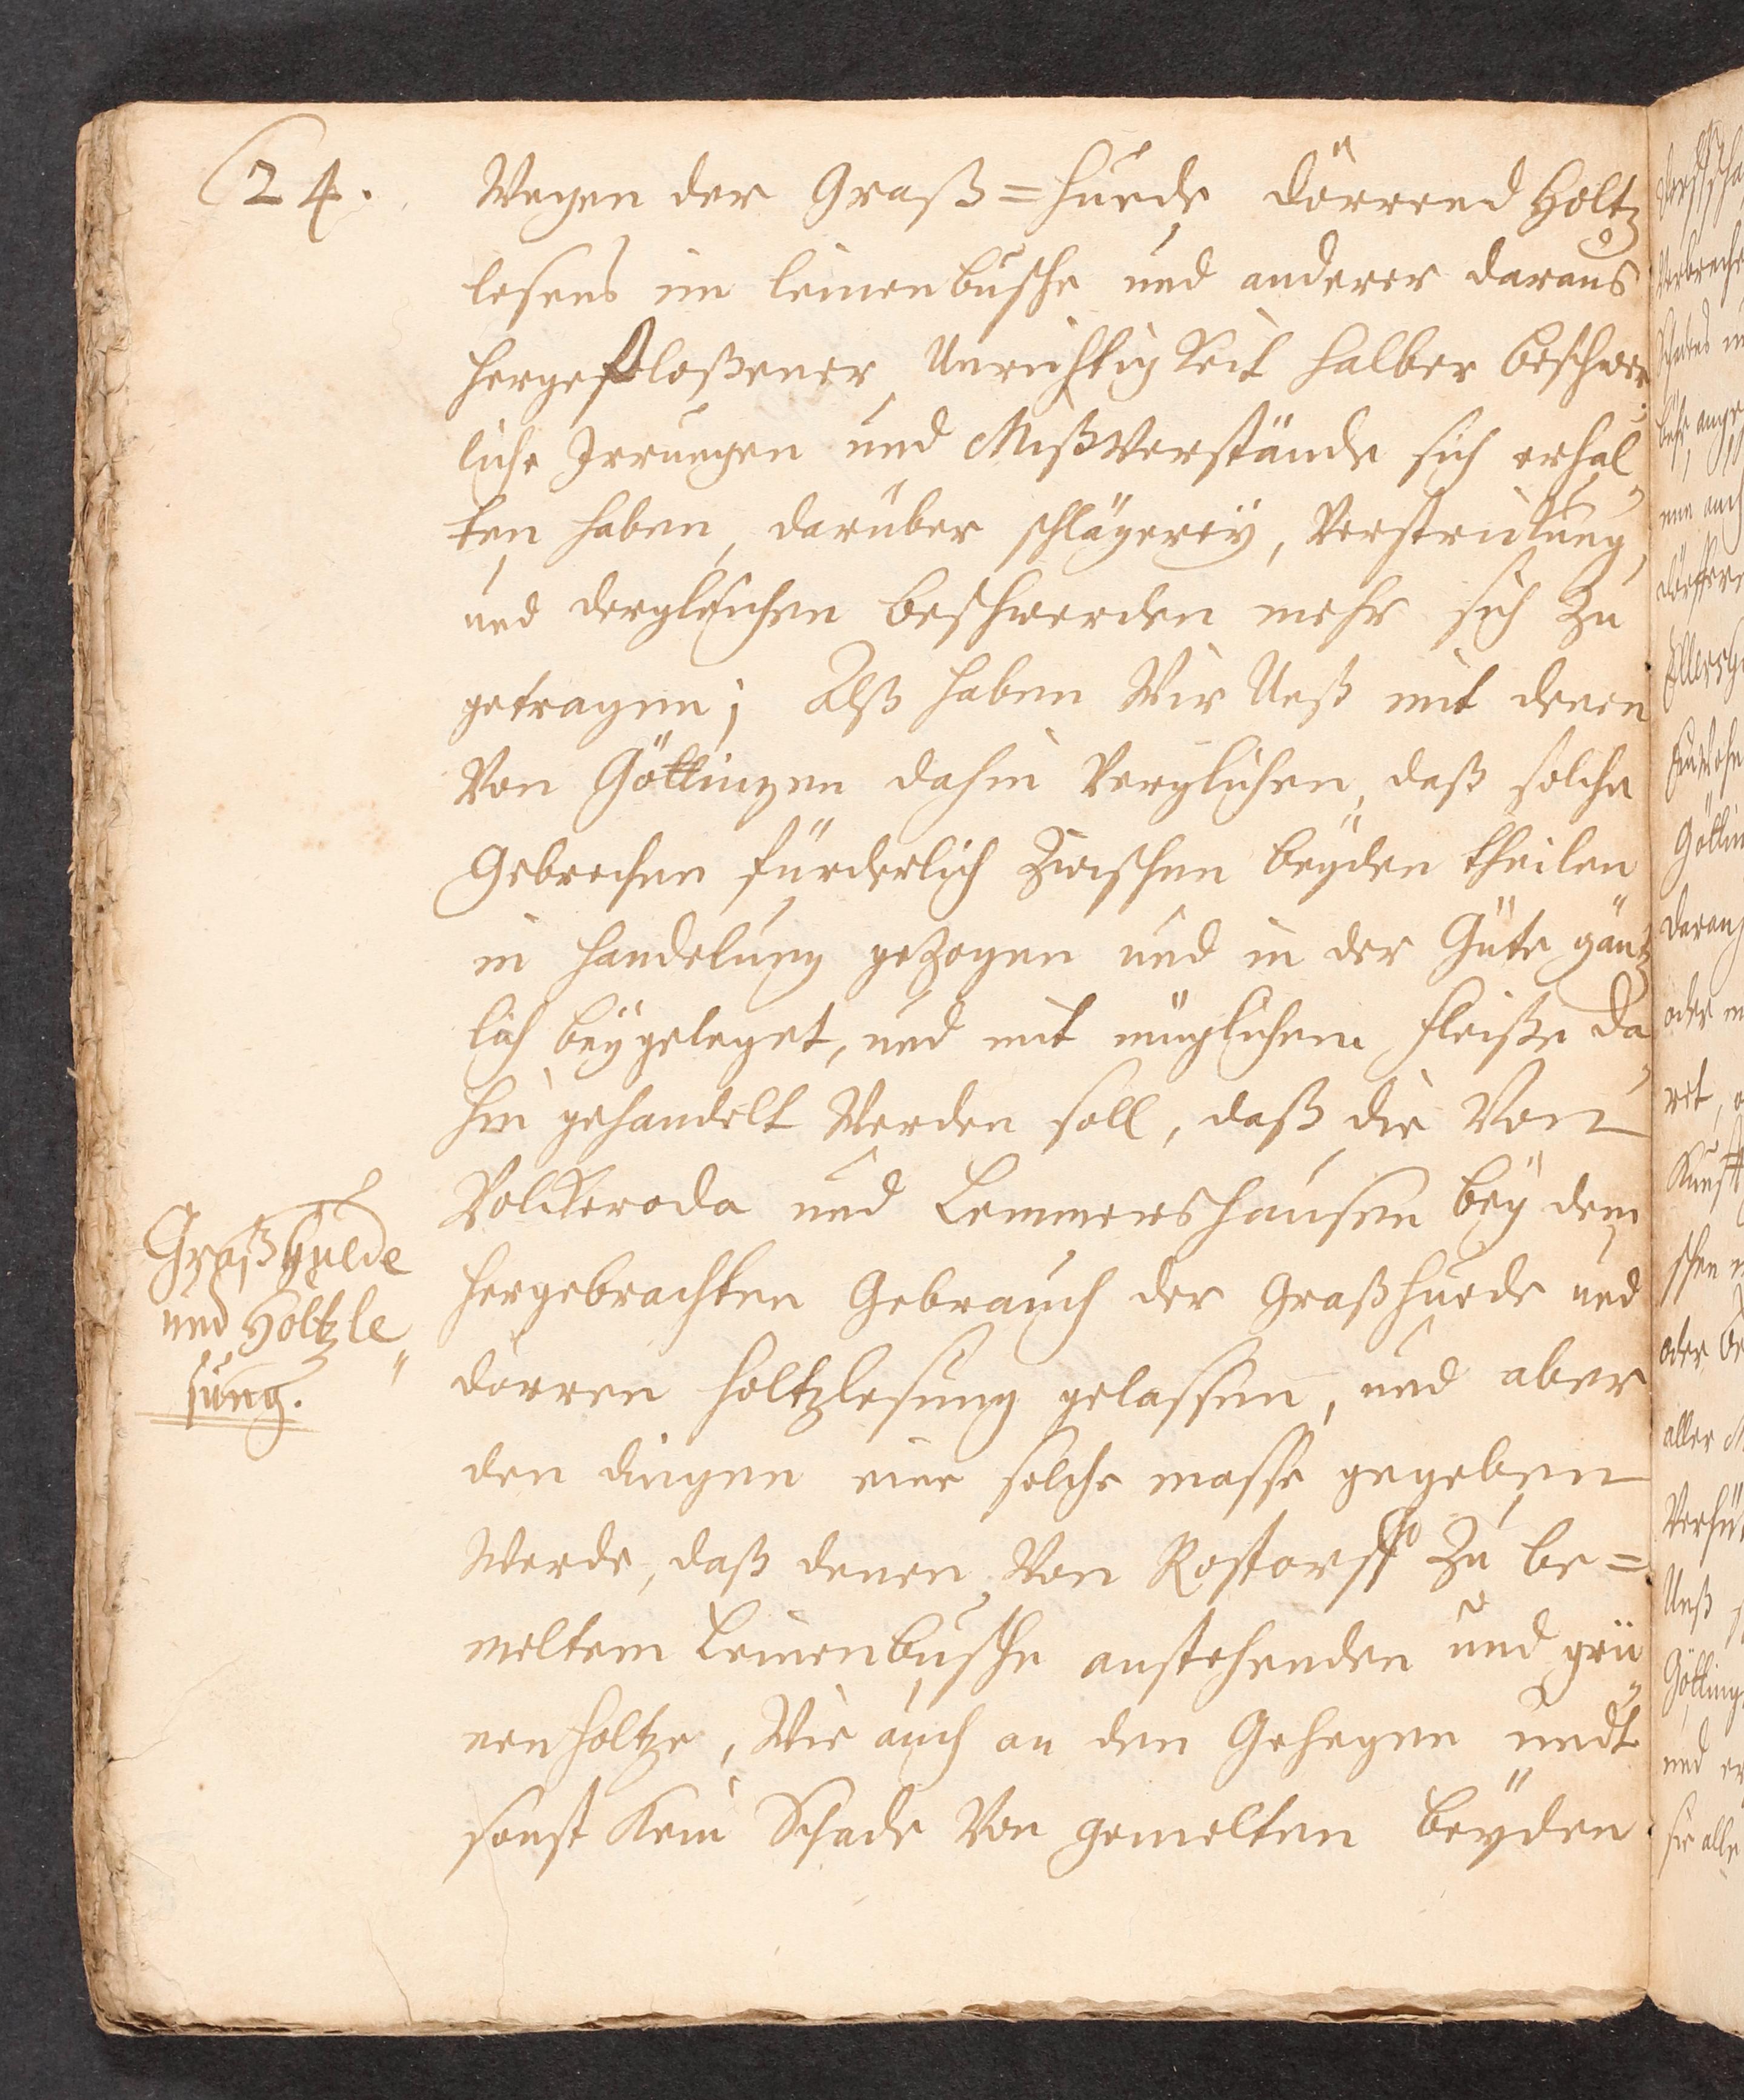 24.
Wegen der Graß=Huede dörrend Holtz
lesens im leinenbusche und anderer daraus
hergefloßener Unrichtigkeit halber beschwer
liche Irrungen und Mißverstände sich erhal„
ten haben, darüber schlägereÿ, Verstrickung,
und dergleichen beschwerden mehr sich Zu
getragen; Alß haben Wir Unß mit denen
Von Göttingen dahin Verglichen, daß solche
Gebrechen fürderlich Zwischen beÿden theilen
in handelung gezogen und in der Güte gäntz
lich beÿgeleget, und mit müglichem fleiße da„
hin gehandelt Werden soll, daß die Von
Volckeroda und Lemmershausen beÿ dem
hergebrachten Gebrauch der Graßhuede und
dorren holtzlesung gelassen, und aber
den dingen eine solche masse gegeben
Werde, daß denen Von Rostorff Zu be=
meltem Leinenbusche anstehenden und grü„
nen holtze, Wie auch an den Gehegen undt
sonst Kein Schade Von gemelten beÿden
Graßhuede
und Holtzle„
sung.